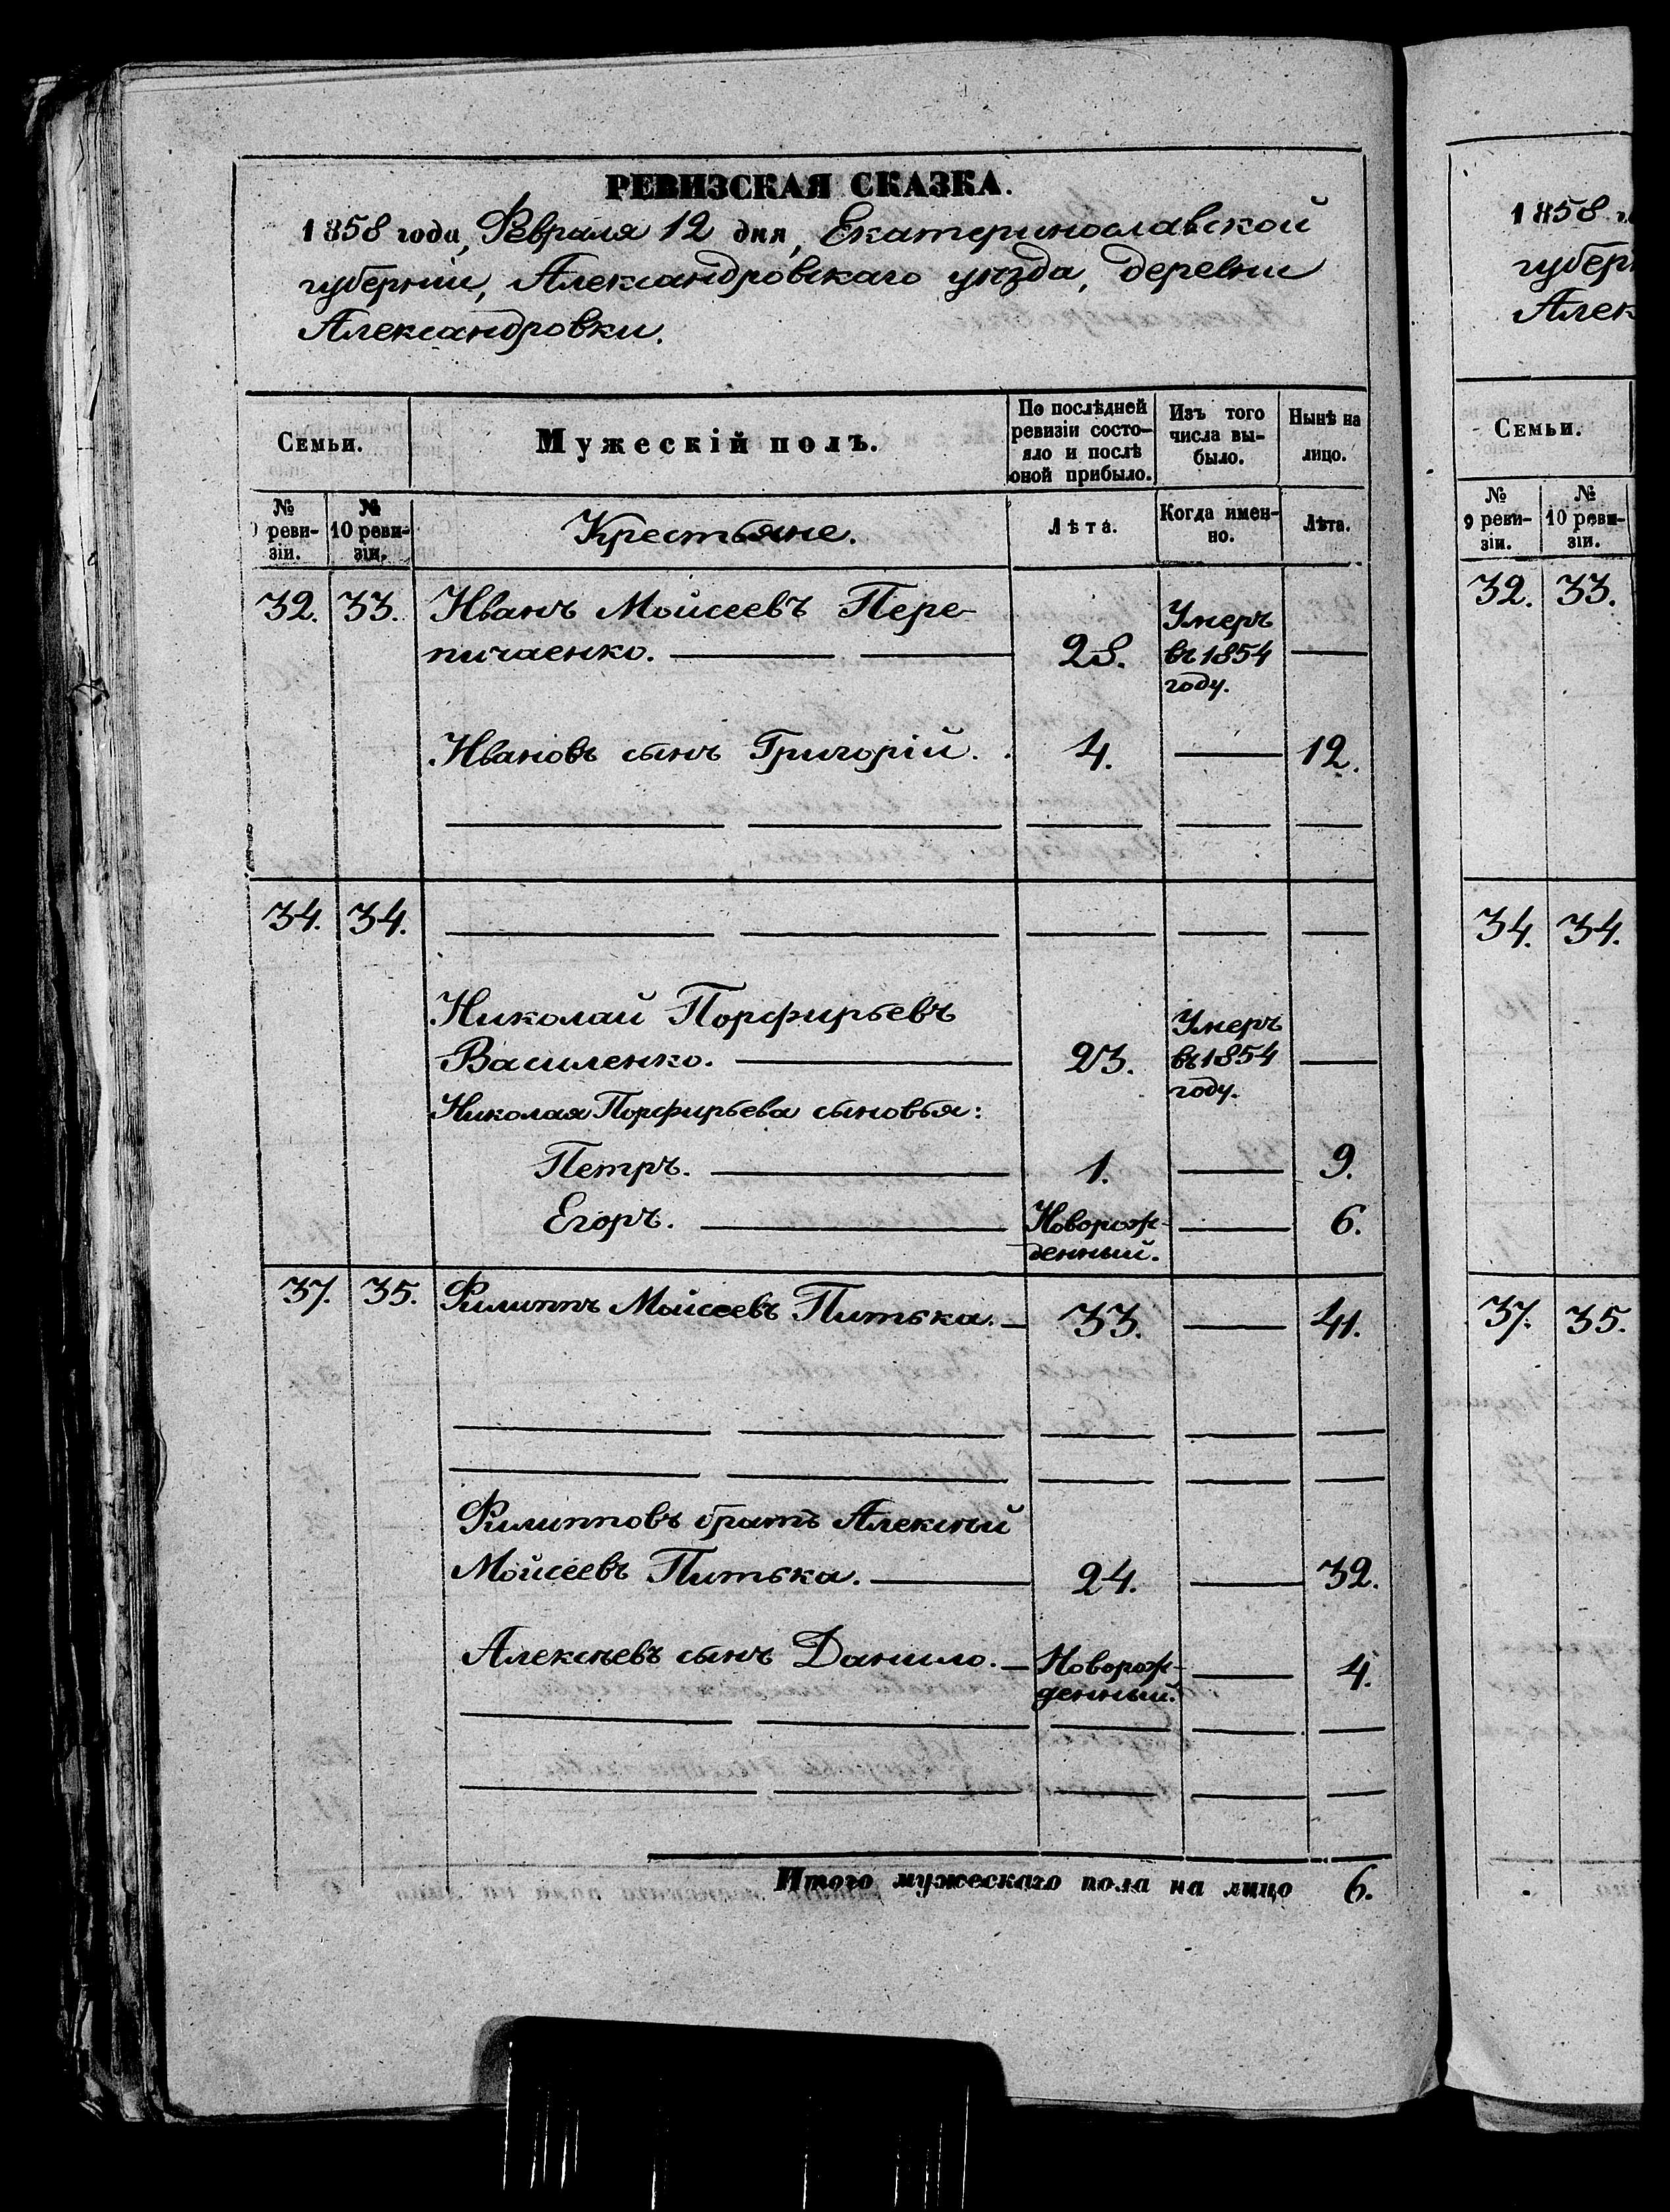 РЕВИЗСКАЯ СКАЗКА.
1858 года, Февраля 12 дня, Екатеринославской
губернiи, Александровскаго уѣзда, деревни
Александровки.
Семьи.
Мужескiй полъ.
По послѣдней ревизiи состо-
яло и послѣ оной прибыло.
Изъ того числа вы-
было.
Нынѣ на лицо.
№ реви-
зiи.
№ 10 реви-
зiи.
Крестьяне.
Лѣта.
Когда имен-
но.
Лѣта.
32. 33. Иванъ Мойсеевъ Пере-
пичаенко. 28. Умеръ въ 1854 году.
Ивановъ сынъ Григорiй. 4. 12.
34. 34.
Николай Порфирьевъ
Василенко. 23. Умеръ въ 1854 году.
Николая Порфирьева сыновья:
Петръ. 1. 9.
Егоръ. Новорож-
денный. 6.
37. 35. Филиппъ Мойсеевъ Питька. 33. 41.
Филипповъ братъ Алексѣй
Мойсеевъ Питька. 24. 32.
Алексѣевъ сынъ Данило. Новорож-
денный. 4.
Итого мужескаго пола на лицо 6.
1858
губер
Алек
Семьи.
№ 9 реви-
зiи.
№ 10 реви-
зiи.
32. 33.
34. 34.
37. 35.